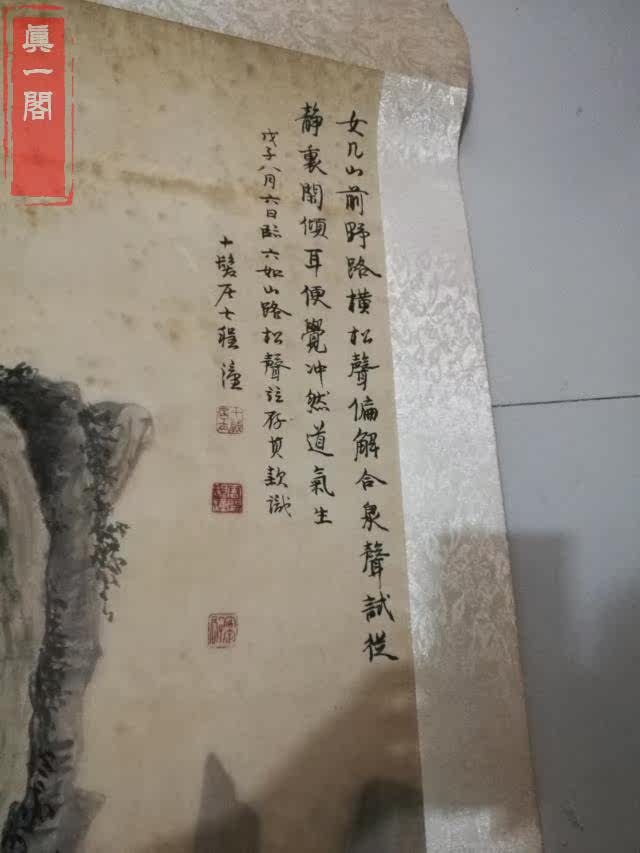 真一閣
女几山前野路横松聲偏解合泉聲試從
静裏閑傾耳便覺冲然道氣生
戊子八月六日臨六如山路松聲並存其款識
十髮居士程潼